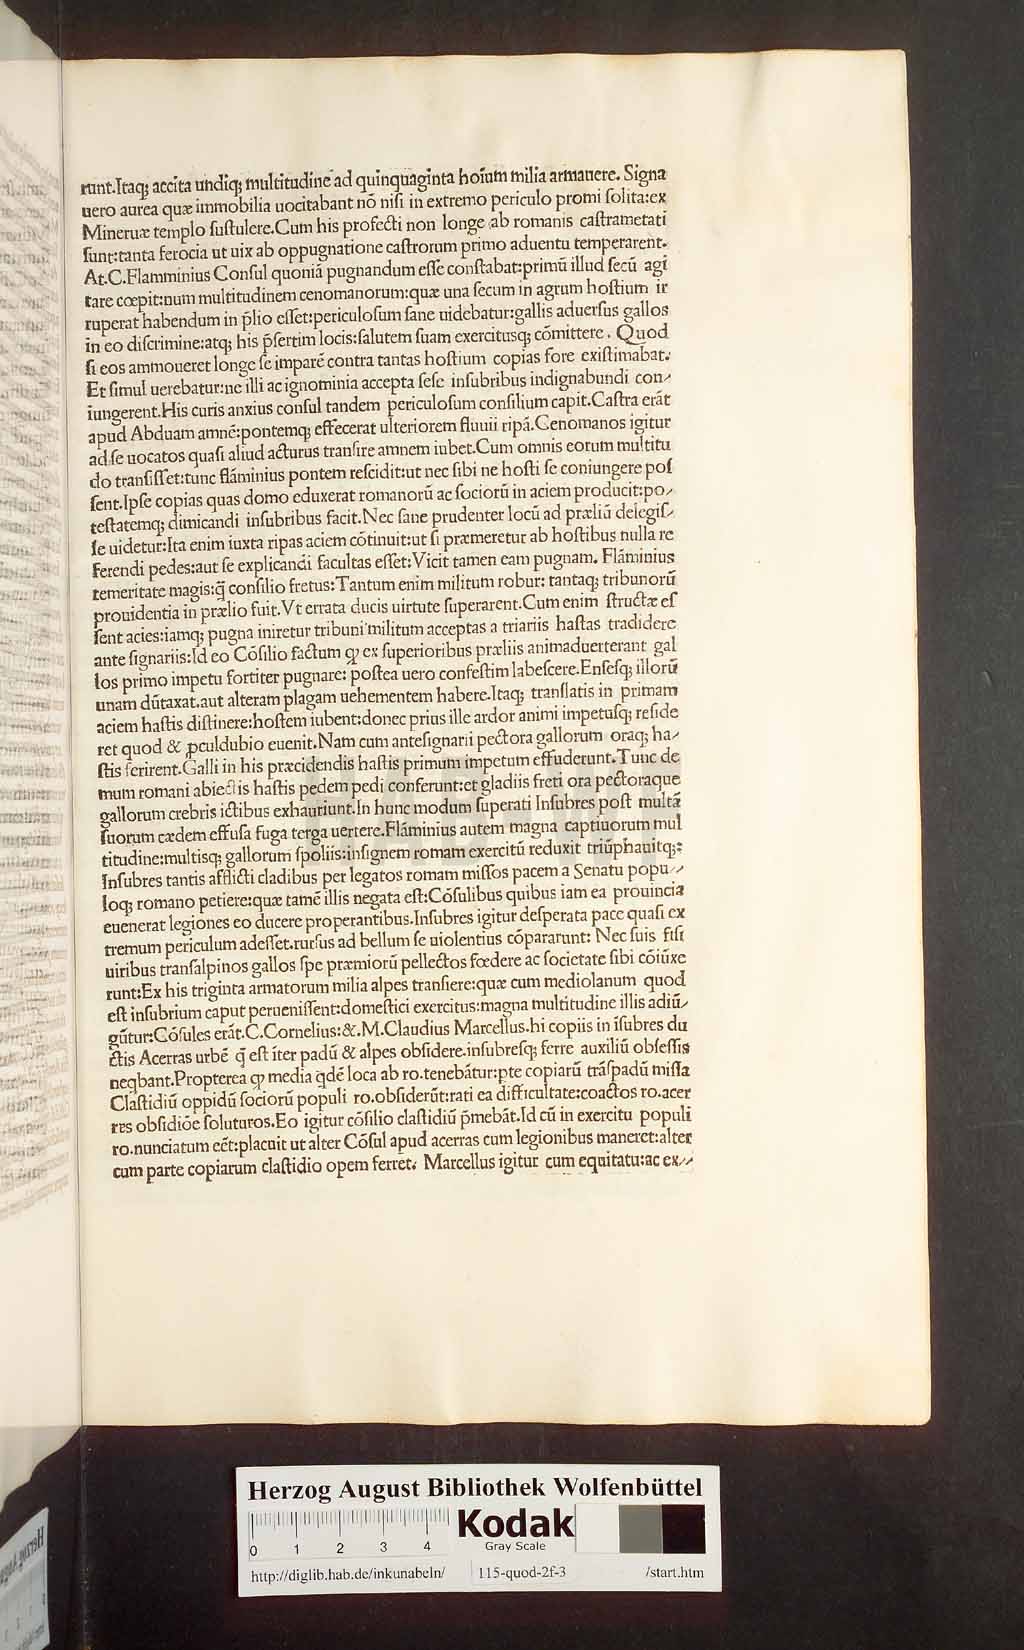 runt.Itaq; accita undiq; multitudine ad quinquaginta hoīum milia armauere. Signa
uero aurea quæ immobilia uocitabant nō niſi in extremo periculo promi ſolita:ex
Mineruæ templo ſuſtulere.Cum his profecti non longe ab romanis caſtrametati
ſunt:tanta ferocia ut uix ab oppugnatione caſtrorum primo aduentu temperarent.
At.C.Flamminius Conſul quoniā pugnandum eſſe conſtabat:primū illud ſecū agi
tare cœpit:num multitudinem cenomanorum:quæ una ſecum in agrum hoſtium ir
ruperat habendum in p̄lio eſſet:periculoſum ſane uidebatur:gallis aduerſus gallos
in eo diſcrimine:atq; his p̄ſertim locis:ſalutem ſuam exercitusq; cōmittere. Quod
ſi eos ammoueret longe ſe imparē contra tantas hoſtium copias fore exiſtimabat.
Et ſimul uerebatur:ne illi ac ignominia accepta ſeſe inſubribus indignabundi con-
iungerent.His curis anxius conſul tandem periculoſum conſilium capit.Caſtra erāt
apud Abduam amnē:pontemq; effecerat ulteriorem fluuii ripā.Cenomanos igitur
ad ſe uocatos quaſi aliud acturus tranſire amnem iubet.Cum omnis eorum multitu
do tranſiſſet:tunc flāminius pontem reſcidit:ut nec ſibi ne hoſti ſe coniungere poſ
ſent.Ipſe copias quas domo eduxerat romanorū ac ſociorū in aciem producit:po-
teſtatemq; dimicandi inſubribus facit.Nec ſane prudenter locū ad præliū delegiſ-
ſe uidetur:Ita enim iuxta ripas aciem cōtinuit:ut ſi præmeretur ab hoſtibus nulla re
ferendi pedes:aut ſe explicandi facultas eſſet:Vicit tamen eam pugnam. Flāminius
temeritate magis:q̄ conſilio fretus:Tantum enim militum robur: tantaq; tribunorū
prouidentia in prælio fuit.Vt errata ducis uirtute ſuperarent.Cum enim ſtructæ eſ
ſent acies:iamq; pugna iniretur tribuni militum acceptas a triariis haſtas tradidere
ante ſignariis:Id eo Cōſilio factum ꝙ ex ſuperioribus præliis animaduerterant gal
los primo impetu fortiter pugnare: poſtea uero confeſtim labeſcere.Enſeſq; illorū
unam dūtaxat.aut alteram plagam uehementem habere.Itaq; tranſlatis in primam
aciem haſtis diſtinere:hoſtem iubent:donec prius ille ardor animi impetuſq; reſide
ret quod & ꝓculdubio euenit.Nam cum anteſignarii pectora gallorum oraq; ha-
ſtis ferirent.Galli in his præcidendis haſtis primum impetum effuderunt.Tunc de
mum romani abiectis haſtis pedem pedi conferunt:et gladiis freti ora pectoraque
gallorum crebris ictibus exhauriunt.In hunc modum ſuperati Inſubres poſt multā
ſuorum cædem effuſa fuga terga uertere.Flāminius autem magna captiuorum mul
titudine:multisq; gallorum ſpoliis:inſignem romam exercitū reduxit triūphauitq;:
Inſubres tantis afflicti cladibus per legatos romam miſſos pacem a Senatu popu-
loq; romano petiere:quæ tamē illis negata eſt:Cōſulibus quibus iam ea prouincia
euenerat legiones eo ducere properantibus.Inſubres igitur deſperata pace quaſi ex
tremum periculum adeſſet.rurſus ad bellum ſe uiolentius cōpararunt: Nec ſuis fiſi
uiribus tranſalpinos gallos ſpe præmiorū pellectos fœdere ac ſocietate ſibi cōiūxe
runt:Ex his triginta armatorum milia alpes tranſiere:quæ cum mediolanum quod
eſt inſubrium caput perueniſſent:domeſtici exercitus:magna multitudine illis adiū-
gūtur:Cōſules erāt.C.Cornelius:&.M.Claudius Marcellus.hi copiis in iſubres du
ctis Acerras urbē q̄ eſt iter padū & alpes obſidere.inſubreſq; ferre auxiliū obſeſſis
neqbant.Propterea ꝙ media qdē loca ab ro.tenebātur:pte copiarū trāſpadū miſſa
Claſtidiū oppidū ſociorū populi ro.obſiderūt:rati ea difficultate:coactos ro.acer
res obſidiōe ſoluturos.Eo igitur cōſilio claſtidiū p̄mebāt.Id cū in exercitu populi
ro.nunciatum eēt:placuit ut alter Cōſul apud acerras cum legionibus maneret:alter
cum parte copiarum claſtidio opem ferret. Marcellus igitur cum equitatu:ac ex-
HAB WF
Herzog August Bibliothek Wolfenbüttel
0 1 2 3 4
Kodak
Gray Scale
http://diglib.hab.de/inkunabeln/ 115-quod-2f-3 /start.htm